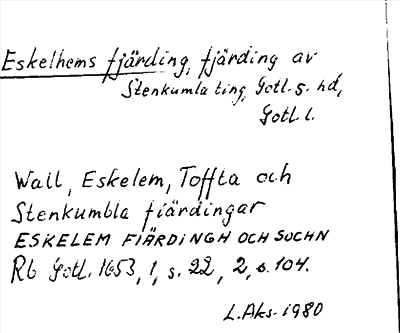 Eskelhems fjärding, fjärding av
Stenkumla ting, Gotl. s. hd,
Gotl. l.
Wall, Eskelem, Toffta och
Stenkumbla fiärdingar
ESKELEM FIÄRDINGH OCH SOCHN
Rb Gotl. 1653, 1, s. 22, 2, s. 104.
L. Aks. 1980